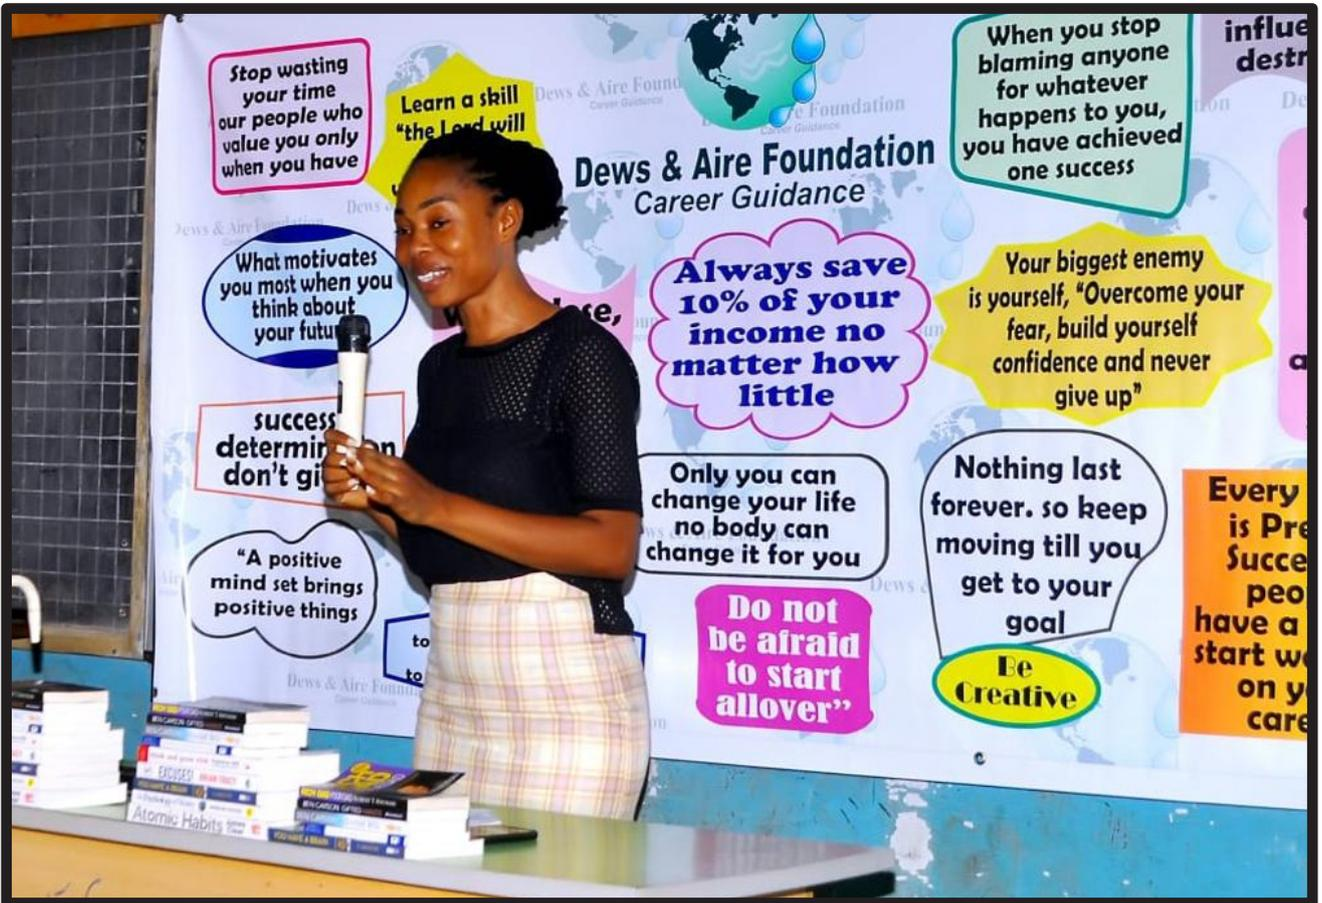 Stop wasting
your time
our people who
value you only
when you have
Learn a skill
"the Lord will
Dews & Aire Foundation
Career Guidance
When you stop
blaming anyone
for whatever
happens to you,
you have achieved
one success
influe
destr
What motivates
you most when you
think about
your futu
Always save
10% of your
income no
matter how
little
Your biggest enemy
is yourself, "Overcome your
fear, build yourself
confidence and never
give up"
success
determin on
don't gi
Only you can
change your life
no body can
change it for you
Nothing last
forever. so keep
moving till you
get to your
goal
Be
Creative
Every
is Pre
Succe
peo
have a
start w
on y
care
"A positive
mind set brings
positive things
to
to
Do not
be afraid
to start
allover"
Dews & Aire Found
Career Guidance
EXCUSES! BRIAN TRACY
Atomic Habits
BEN CARSON GIFTED
YOU HAVE A BRAIN